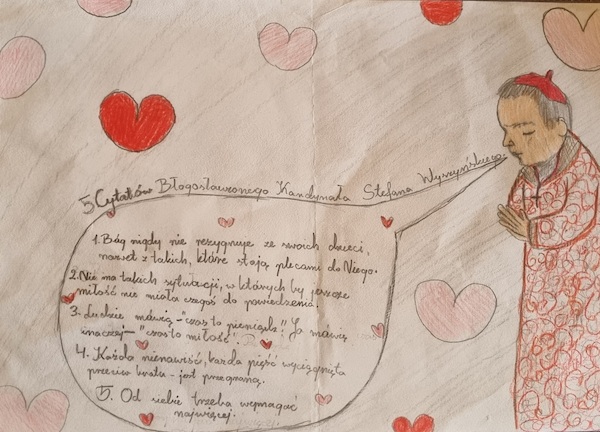 5 Cytatów Błogosławionego Kardynała Stefana Wyszyńskiego
1. Bóg nigdy nie rezygnuje ze swoich dzieci,
nawet z takich, które stają plecami do Niego.
2. Nie ma takich sytuacji, w których by jeszcze
miłość nie miała czegoś do powiedzenia.
3. Ludzie mówią - "czas to pieniądz". Ja mówię
inaczej - "czas to miłość".
4. Każda nienawiść, każda pięść wyciągnięta
przeciw bratu - jest przegraną.
5. Od siebie trzeba wymagać
najwięcej.